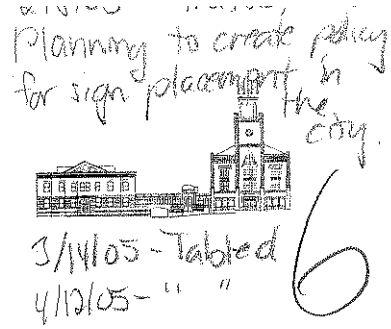 Planning to create policy
for sign placement in
the
city.
3/14/05 - Tabled
4/12/05 - " "
6